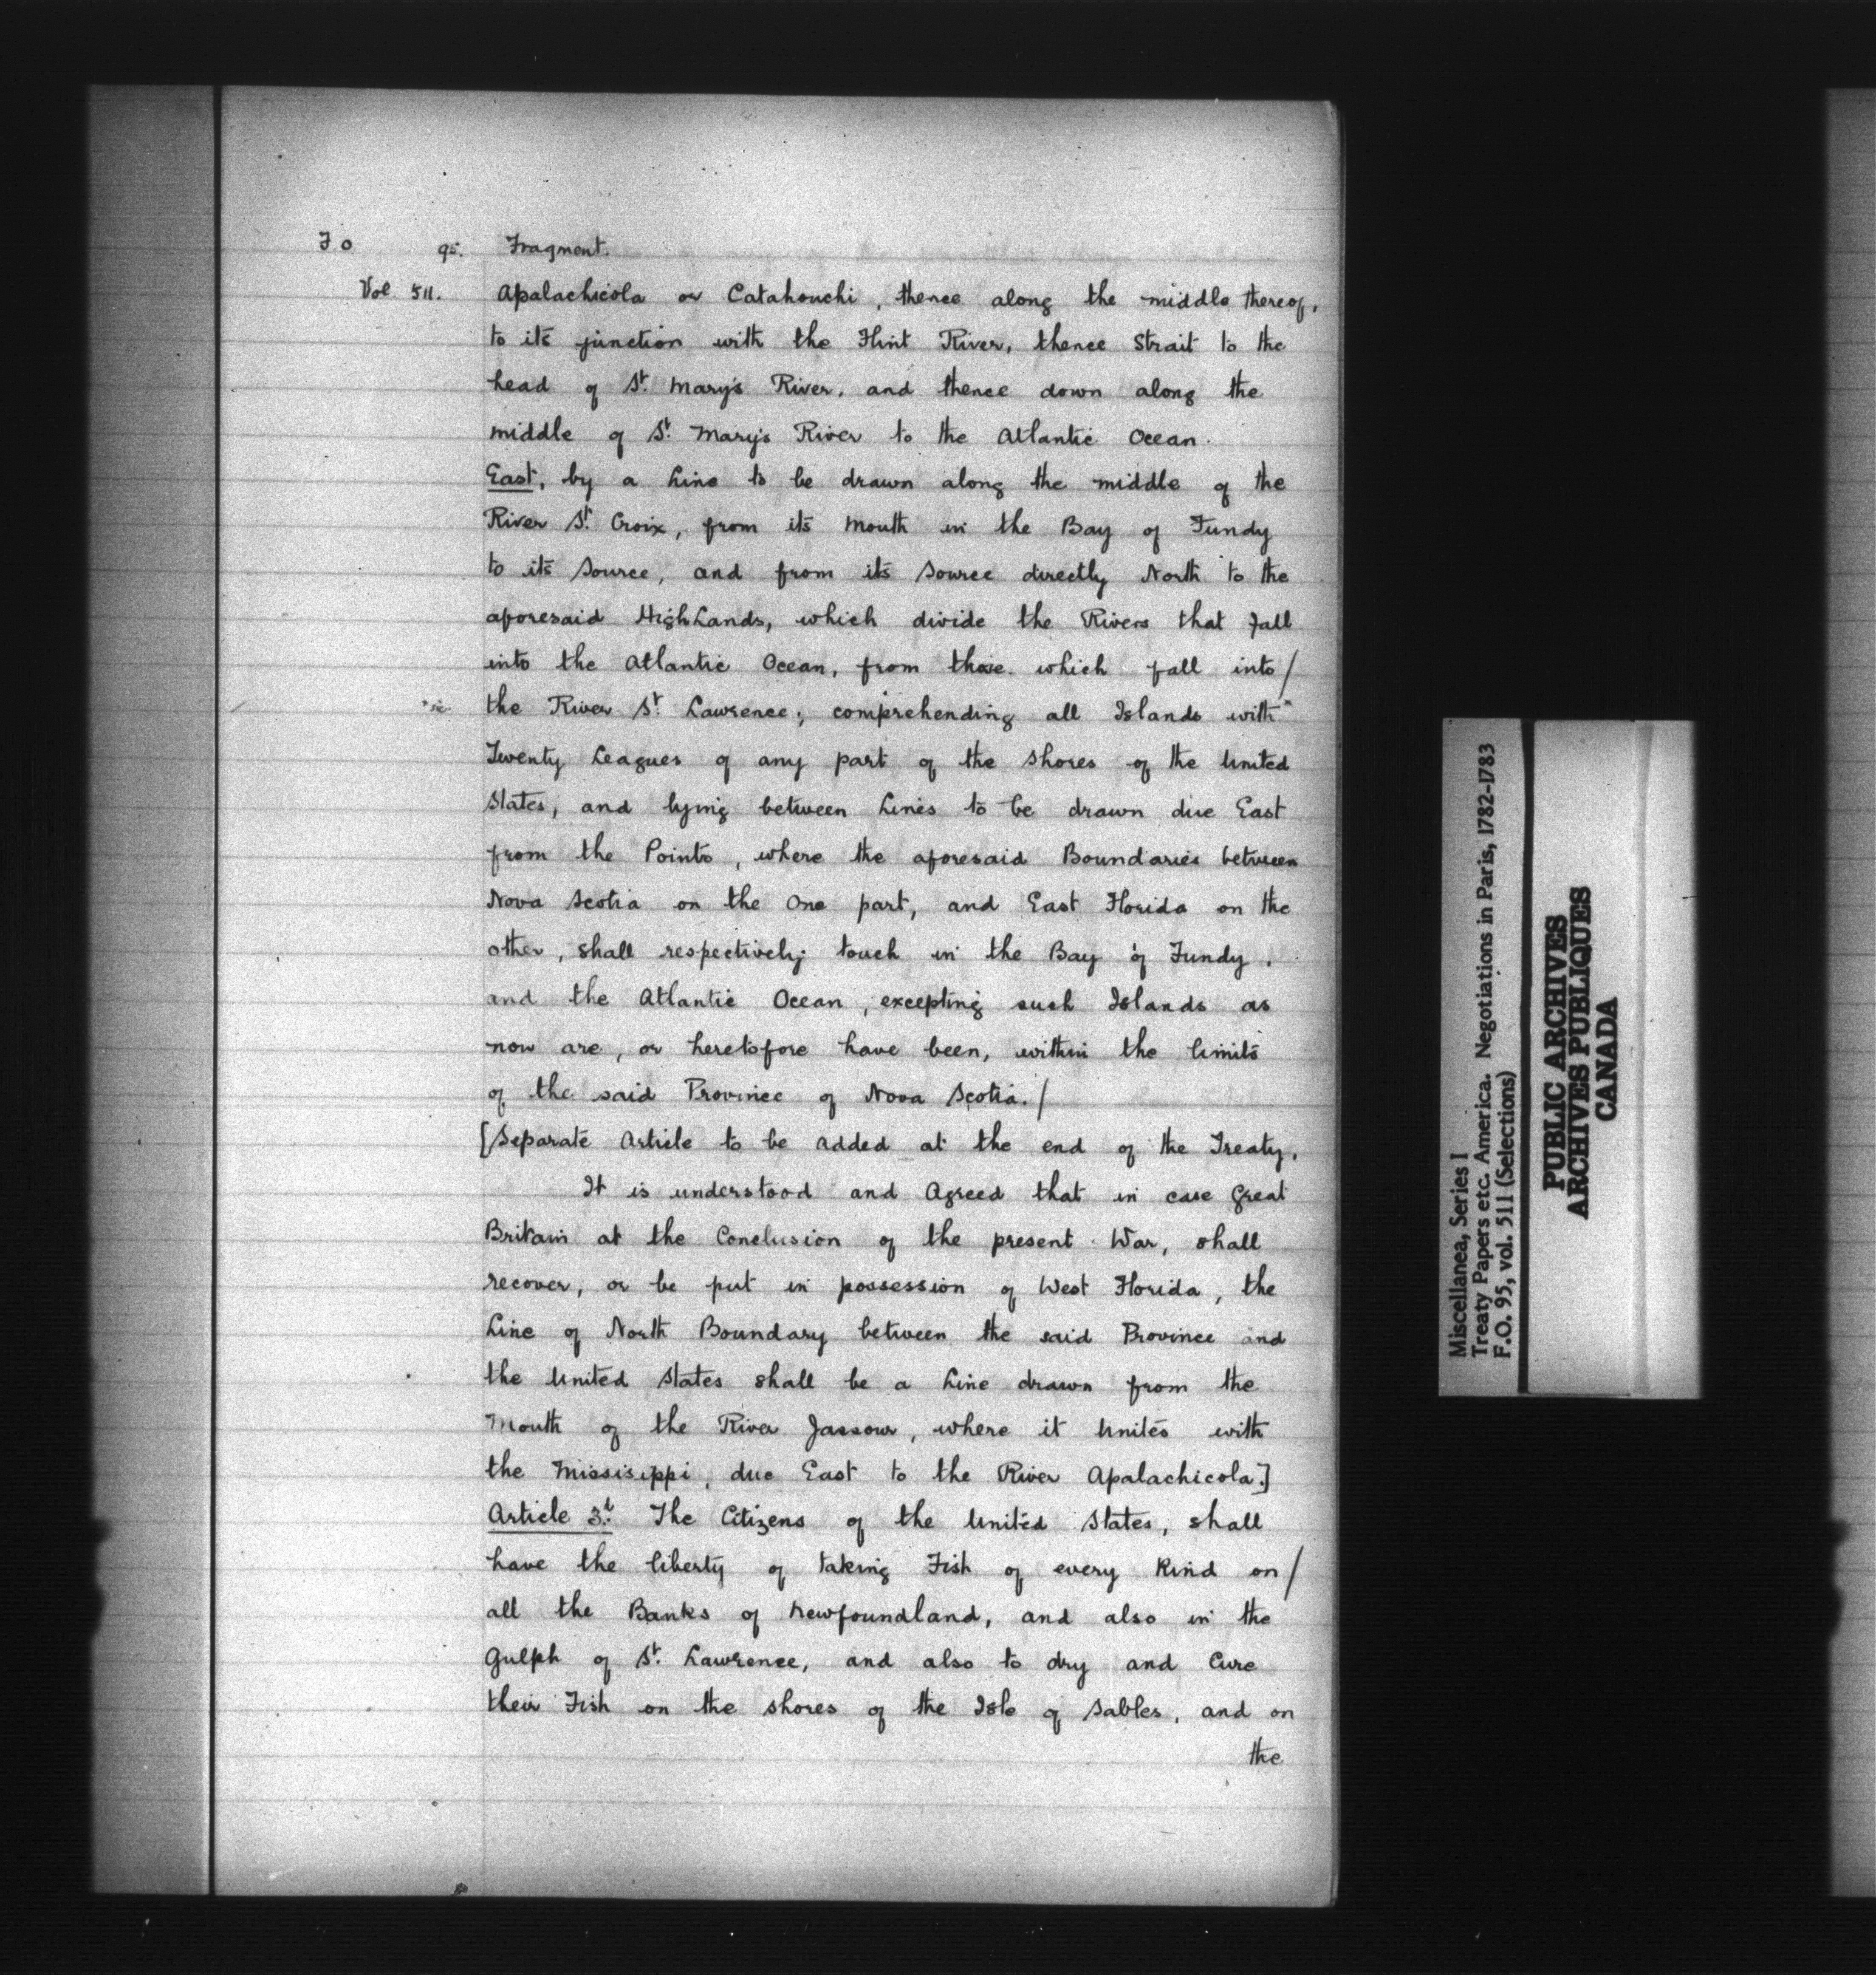 F O 95. Fragment.
Vol. 511. Apalachicola or Catahouchi, thence along the middle thereof,
to its junction with the Flint River, thence Strait to the
head of St. Mary's River, and thence down along the
middle of St. Mary's River to the Atlantic Ocean.
East, by a Line to be drawn along the middle of the
River St. Croix, from its Mouth in the Bay of Fundy
to its Source, and from its Source directly North to the
aforesaid HighLands, which divide the Rivers that fall
into the Atlantic Ocean, from those which fall into/
*sic the River St. Lawrence; comprehending all Islands with*
Twenty Leagues of any part of the Shores of the United
States, and lying between Lines to be drawn due East
from the Points, where the aforesaid Boundaries between
Nova Scotia on the One part, and East Florida on the
other, shall respectively touch in the Bay of Fundy,
and the Atlantic Ocean, excepting such Islands as
now are, or heretofore have been, within the limits
of the said Province of Nova Scotia./
[Separate Article to be added at the end of the Treaty.
It is understood and Agreed that in case Great
Britain at the Conclusion of the present War, shall
recover, or be put in possession of West Florida, the
Line of North Boundary between the said Province and
the United States shall be a Line drawn from the
Mouth of the River Jassour, where it Unites with
the Missisippi, due East to the River Apalachicola.]
Article 3d. The Citizens of the United States, shall
have the liberty of taking Fish of every Kind on/
all the Banks of Newfoundland, and also in the
Gulph of St. Lawrence, and also to dry and Cure
their Fish on the Shores of the Isle of Sables, and on
the
Miscellanea, Series 1
Treaty Papers etc. America. Negotiations in Paris, 1782-1783
F.O. 95, vol. 511 (Selections)
PUBLIC ARCHIVES
ARCHIVES PUBLIQUES
CANADA